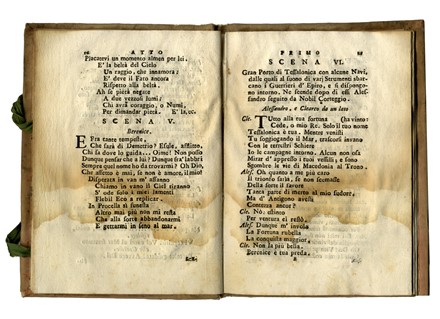 ATTO
Placatevi un momento almen per lei.
E' la beltà del Cielo
Un raggio, che innamora;
E' deve il Fato ancora
Rispetto alla beltà.
Ah se pietà negate
A due vezzosi lumi;
Chi avrà coraggio, o Numi,
Per dimandar pietà.
SCENA V.
Berenice.
E Fra tante tempeste,
Che sarà di Demetrio? Esule, afflitto,
Chi sa dove lo guida... Oimè! Non posso
Dunque pensar che a lui? Dunque fra' labbri
Sempre quel nome ho da trovarmi? Oh Dio,
Che affetto è mai, se non è amore, il mio!
Disperata in van m' affanno
Chiamo in vano il Ciel tiranno
S' ode solo i miei lamenti
Flebil Eco a replicar.
In Procella sì funesta
Altro mai più non mi resta
Che alla sorte abbandonarmi
E gettarmi in seno al mar.
PRIMO
SCENA VI.
Gran Porto di Tessalonica con alcune Navi,
dalle quali al suono di varj Strumenti sbarcano
i Guerrieri d' Epiro, e si dispongono
intorno. Ne scende dopo di essi Alessandro
seguito da Nobil Corteggio.
Alessandro, e Clearco da un lato
Cle. Tutto alla tua fortuna
Cede, o mio Re. Solo il tuo nome
Tessalonica è tua. Mentre venisti
Tu soggiogando il Mar, trascorsi invano
Con le terrestri Schiere
Io le campagne intorno. Alcun non osa
Mirar d' appresso i tuoi vessilli; e sono
Sgombre le vie di Macedonia al Trono.
Ales. Oh quanto a me più caro
Il trionfo saria, se non scemasse
Della sorte il favore
Tanta parte di merto al mio sudore.
Ma d' Antigono avesti
Contezza ancor?
Cle. Nò: estinto
Per ventura ei restò.
Ales. Dunque m' invola
La Fortuna rubella
La conquista maggior.
Cle. Non la più bella.
Berenice è tua preda.